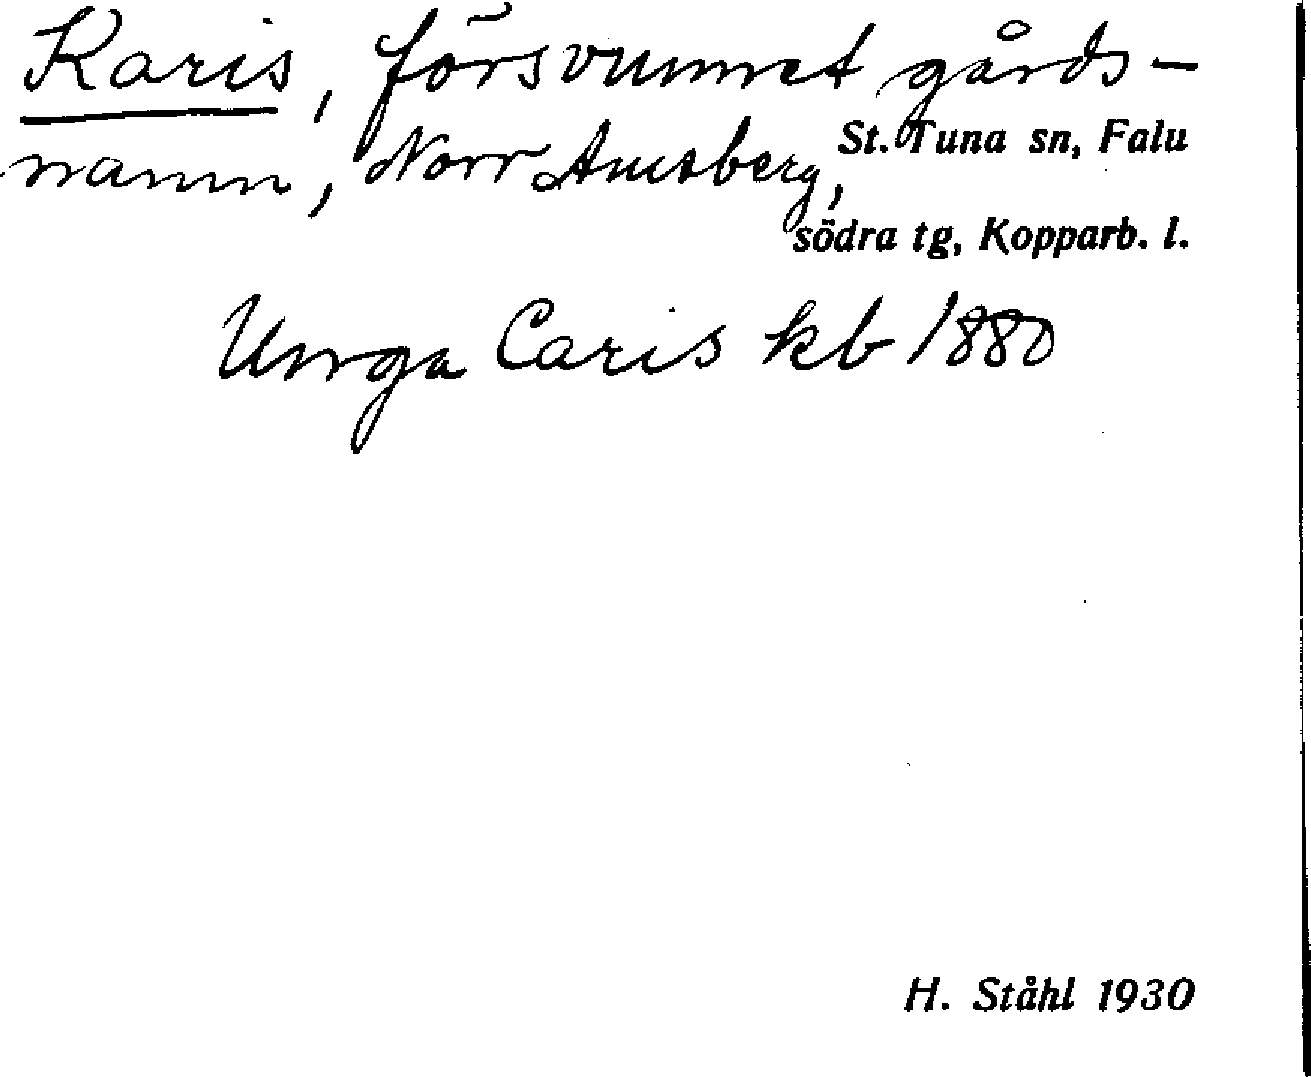 Karis, försvunnet gårds-
namn, Norr Amsberg,
St. Tuna sn, Falu
södra tg, Kopparb. l.
Unga Caris kb 1880
H. Ståhl 1930